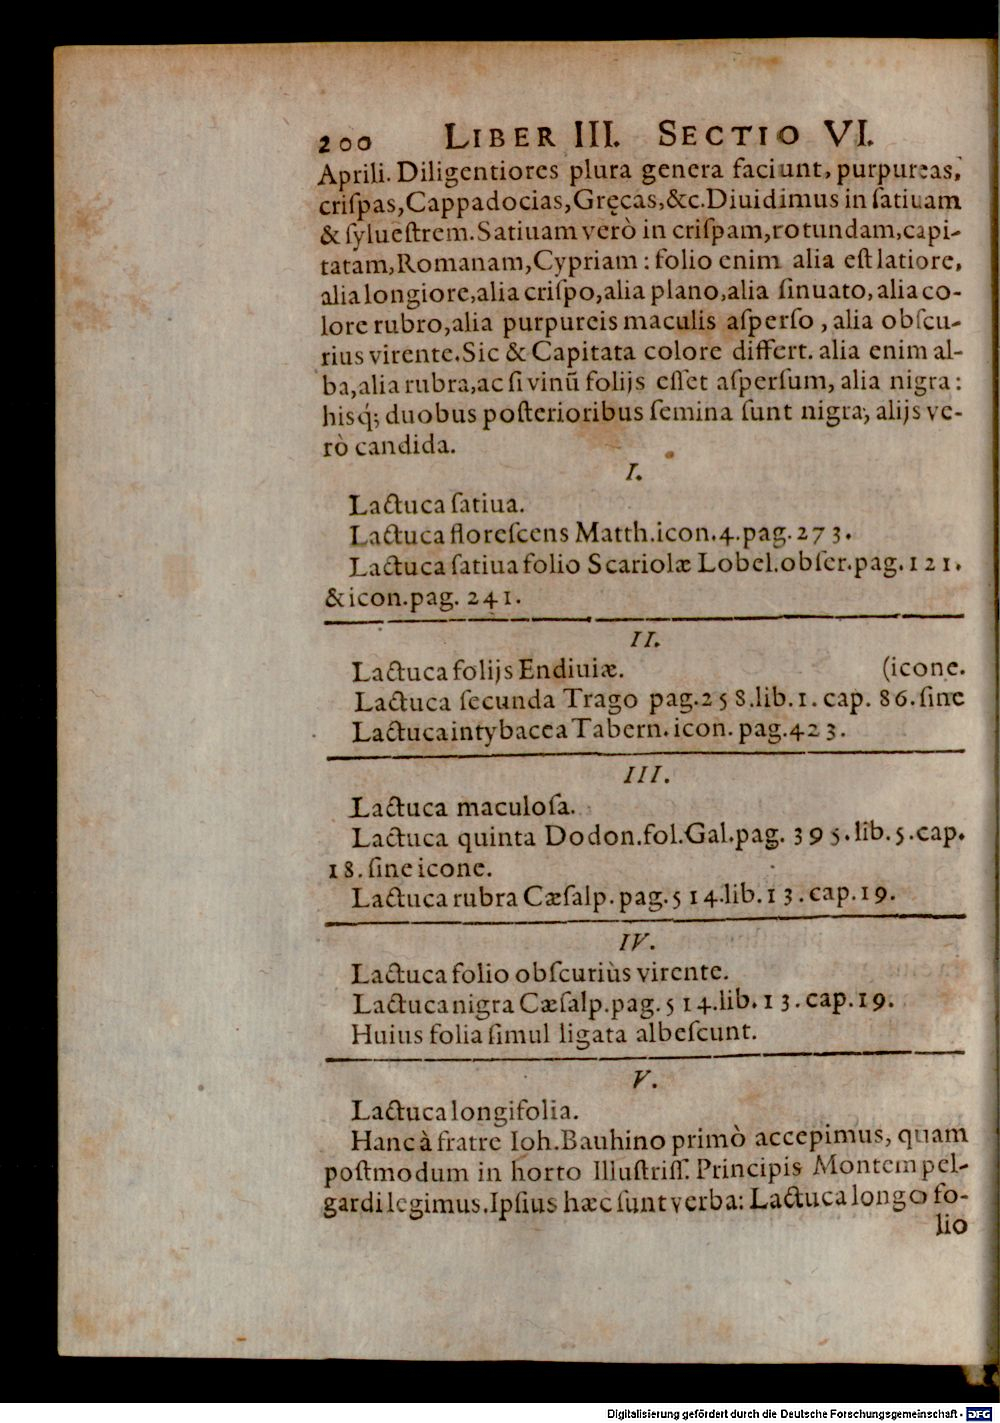 200 LIBER III. SECTIO VI.
Aprili. Diligentiores plura genera faciunt, purpureas,
criſpas, Cappadocias, Gręcas, &c. Diuidimus in ſatiuam
& ſylueſtrem. Satiuam verò in criſpam, rotundam, capi-
tatam, Romanam, Cypriam: folio enim alia eſt latiore,
alia longiore, alia criſpo, alia plano, alia ſinuato, alia co-
lore rubro, alia purpureis maculis aſperſo, alia obſcu-
rius virente. Sic & Capitata colore differt. alia enim al-
ba, alia rubra, ac ſi vinũ folijs eſſet aſperſum, alia nigra:
hisq́; duobus poſterioribus ſemina ſunt nigra, alijs ve-
rò candida.
I.
Lactuca ſatiua.
Lactuca floreſcens Matth. icon. 4. pag. 273.
Lactuca ſatiua folio Scariolæ Lobel. obſer. pag. 121.
& icon. pag. 241.
II.
Lactuca folijs Endiuiæ. (icone.
Lactuca ſecunda Trago pag. 258. lib. 1. cap. 86. ſine
Lactuca intybacea Tabern. icon. pag. 423.
III.
Lactuca maculoſa.
Lactuca quinta Dodon. fol. Gal. pag. 395. lib. 5. cap.
18. ſine icone.
Lactuca rubra Cæſalp. pag. 514. lib. 13. cap. 19.
IV.
Lactuca folio obſcuriùs virente.
Lactuca nigra Cæſalp. pag. 514. lib. 13. cap. 19.
Huius folia ſimul ligata albeſcunt.
V.
Lactuca longifolia.
Hanc à fratre Ioh. Bauhino primò accepimus, quam
poſtmodum in horto Illuſtriſſ. Principis Montempel-
gardi legimus. Ipſius hæc ſunt verba: Lactuca longo fo-
lio
Digitalisierung gefördert durch die Deutsche Forschungsgemeinschaft - DFG